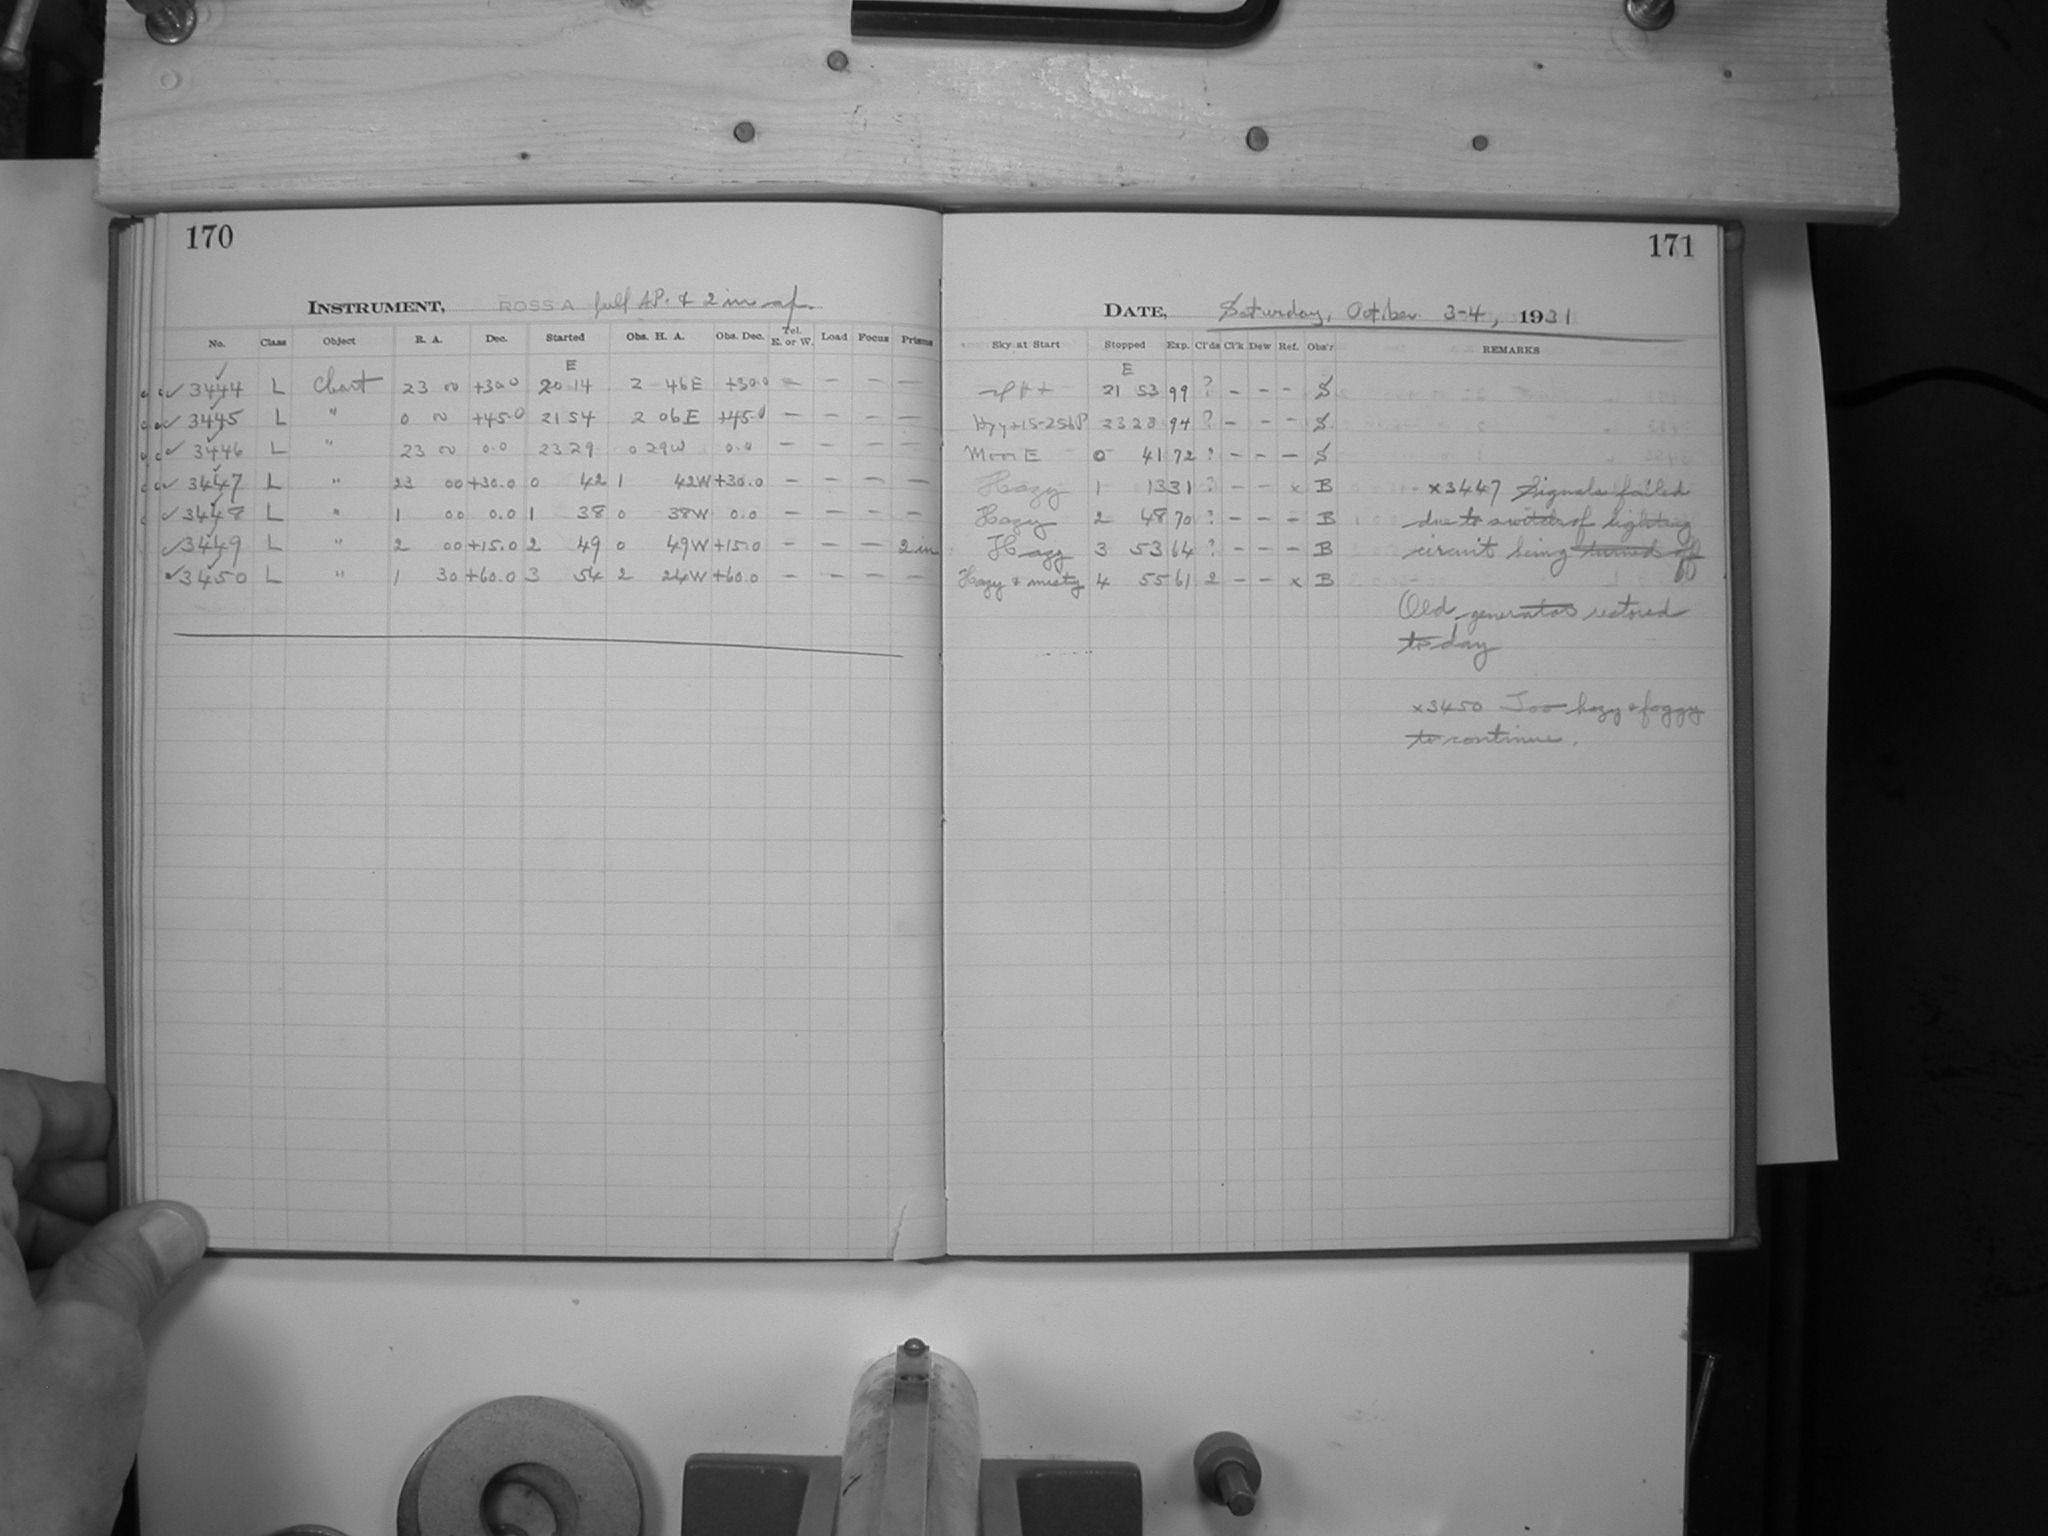 170
INSTRUMENT, ROSS A full AP. & 2 in ap.
No. Class Object R. A. Dec. Started Obs. H. A. Obs. Dec. Tel. E. or W. Load Focus Prisms
E
3444 L Chart 23 +30.0 20 14 2 46E +30.0 - - - -
3445 L " 0 +45.0 21 54 2 06E +45.0 - - - -
3446 L " 23 0.0 23 29 0 29W 0.0 - - - -
3447 L " 23 00 +30.0 0 42 1 42W +30.0 - - - -
3448 L " 1 00 0.0 1 38 0 38W 0.0 - - - -
3449 L " 2 00 +15.0 2 49 0 49W +15.0 - - - 2 in
3450 L " 1 30 +60.0 3 54 2 24W +60.0 - - - -
171
DATE, Saturday, October 3-4, 1931
Sky at Start Stopped Exp. Cl'ds Cl'k Dew Ref. Obs'r REMARKS
E
21 53 99 ? - - - S
23 28 94 ? - - - S
Moon E 0 41 72 ? - - - S
Hazy 1 13 31 ? - - x B x3447 Signals failed
Hazy 2 48 70 ? - - - B due to switch of lighting
Hazy 3 53 64 ? - - - B circuit being turned off
Hazy & misty 4 55 61 2 - - x B
Old generator restored
today
x3450 Too hazy & foggy
to continue.